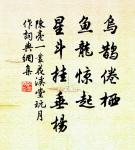 烏鵲倦栖
魚龍驚起
星斗挂垂楊
陳亮一叢花溪堂玩月
作詞典網集